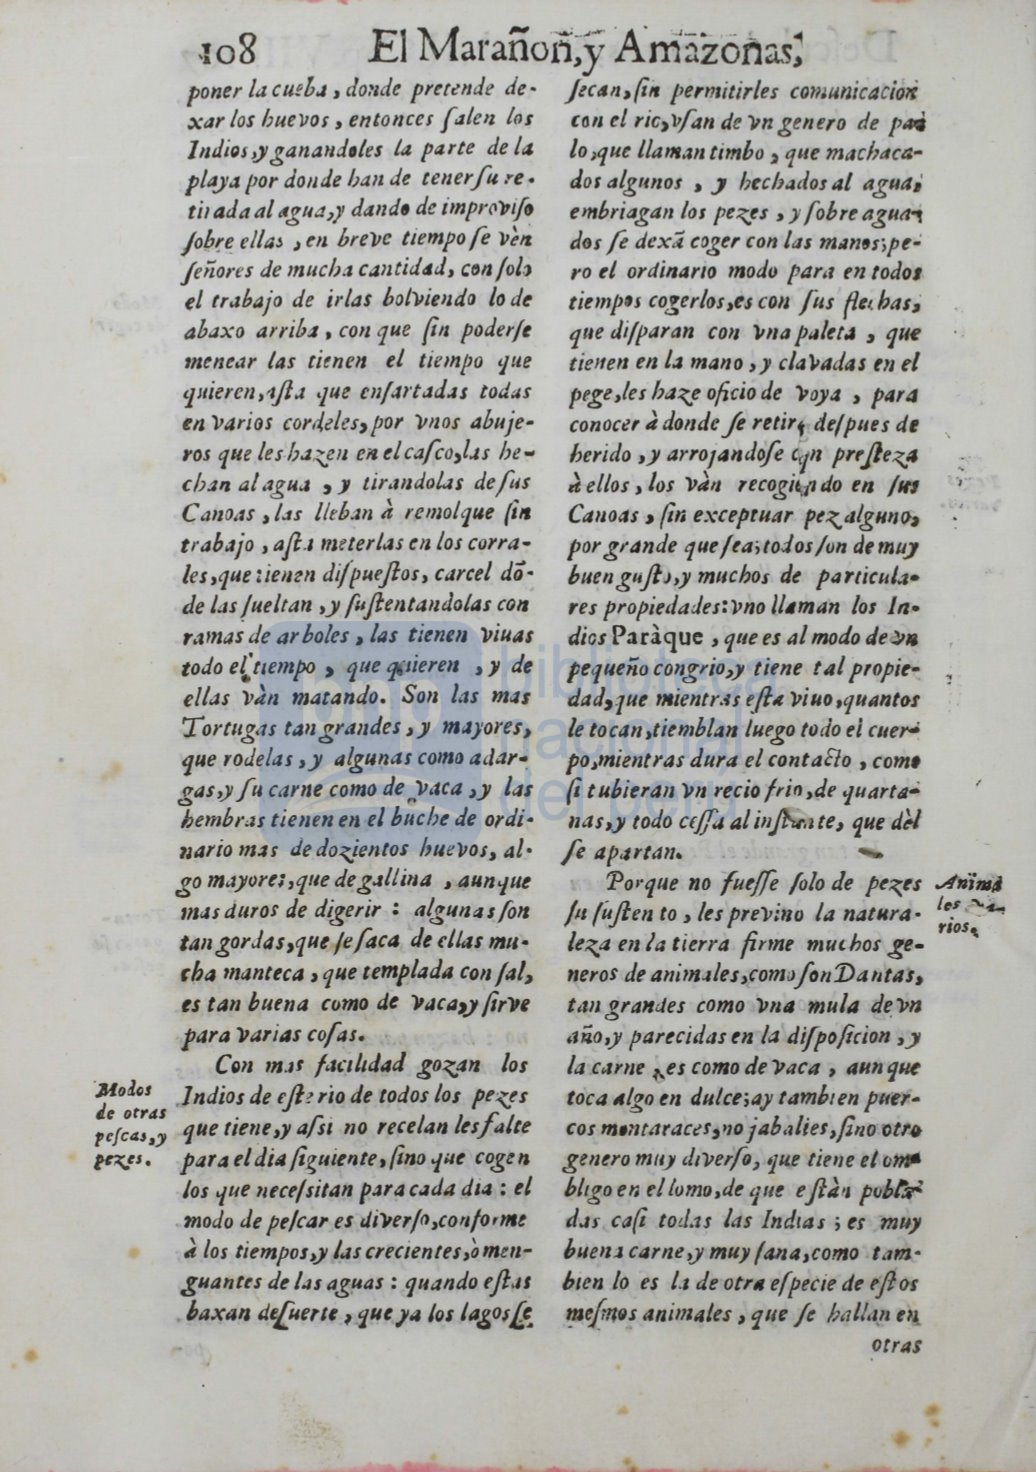 108
El Marañon, y Amazonas,
poner la cueba, donde pretende de-
xar los huevos, entonces ſalen los
Indios, y ganandoles la parte de la
playa por donde han de tener ſu re-
tirada al agua, y dando de improviſo
ſobre ellas, en breve tiempo ſe vèn
ſeñores de mucha cantidad, con ſolo
el trabajo de irlas bolviendo lo de
abaxo arriba, con que ſin poderſe
menear las tienen el tiempo que
quieren, aſta que enſartadas todas
en varios cordeles, por vnos abuje-
ros que les hazen en el caſco, las he-
chan al agua, y tirandolas de ſus
Canoas, las lleban à remolque ſin
trabajo, aſta meterlas en los corra-
les, que tienen diſpueſtos, carcel dõ-
de las ſueltan, y ſuſtentandolas con
ramas de arboles, las tienen viuas
todo el tiempo, que quieren, y de
ellas vàn matando. Son las mas
Tortugas tan grandes, y mayores,
que rodelas, y algunas como adar-
gas, y ſu carne como de vaca, y las
hembras tienen en el buche de ordi-
nario mas de dozientos huevos, al-
go mayores, que de gallina, aunque
mas duros de digerir: algunas ſon
tan gordas, que ſe ſaca de ellas mu-
cha manteca, que templada con ſal,
es tan buena como de vaca, y ſirve
para varias coſas.
Con mas facilidad gozan los
Indios de eſte rio de todos los pezes
que tiene, y aſsi no recelan les falte
para el dia ſiguiente, ſino que cogen
los que neceſsitan para cada dia: el
modo de peſcar es diverſo, conforme
à los tiempos, y las crecientes, ò men-
guantes de las aguas: quando eſtas
baxan de ſuerte, que ya los lagos ſe
Modos
de otras
peſcas, y
pezes.
ſecan, ſin permitirles comunicacion
con el rio, vſan de vn genero de pa
lo, que llaman timbo, que machaca-
dos algunos, y hechados al agua,
embriagan los pezes, y ſobre agua-
dos ſe dexã coger con las manos; pe-
ro el ordinario modo para en todos
tiempos cogerlos, es con ſus flechas,
que diſparan con vna paleta, que
tienen en la mano, y clavadas en el
pege, les haze oficio de voya, para
conocer à donde ſe retira deſpues de
herido, y arrojandoſe con preſteza
à ellos, los vàn recogiendo en ſus
Canoas, ſin exceptuar pez alguno,
por grande que ſea; todos ſon de muy
buen guſto, y muchos de particula-
res propiedades: vno llaman los In-
dios Paràque, que es al modo de vn
pequeño congrio, y tiene tal propie-
dad, que mientras eſta viuo, quantos
le tocan, tiemblan luego todo el cuer-
po, mientras dura el contacto, como
ſi tubieran vn recio frio, de quarta-
nas, y todo ceſſa al inſtante, que dèl
ſe apartan.
Porque no fueſſe ſolo de pezes
ſu ſuſtento, les previno la natura-
leza en la tierra firme muchos ge-
neros de animales, como ſon Dantas,
tan grandes como vna mula de vn
año, y parecidas en la diſpoſicion, y
la carne es como de vaca, aunque
toca algo en dulce; ay tambien puer-
cos montaraces, no jabalies, ſino otro
genero muy diverſo, que tiene el om
bligo en el lomo, de que eſtàn pobla
das caſi todas las Indias; es muy
buena carne, y muy ſana, como tam-
bien lo es la de otra eſpecie de eſtos
meſmos animales, que ſe hallan en
otras
Anima
les va-
rios.
biblioteca
nacional
del perú